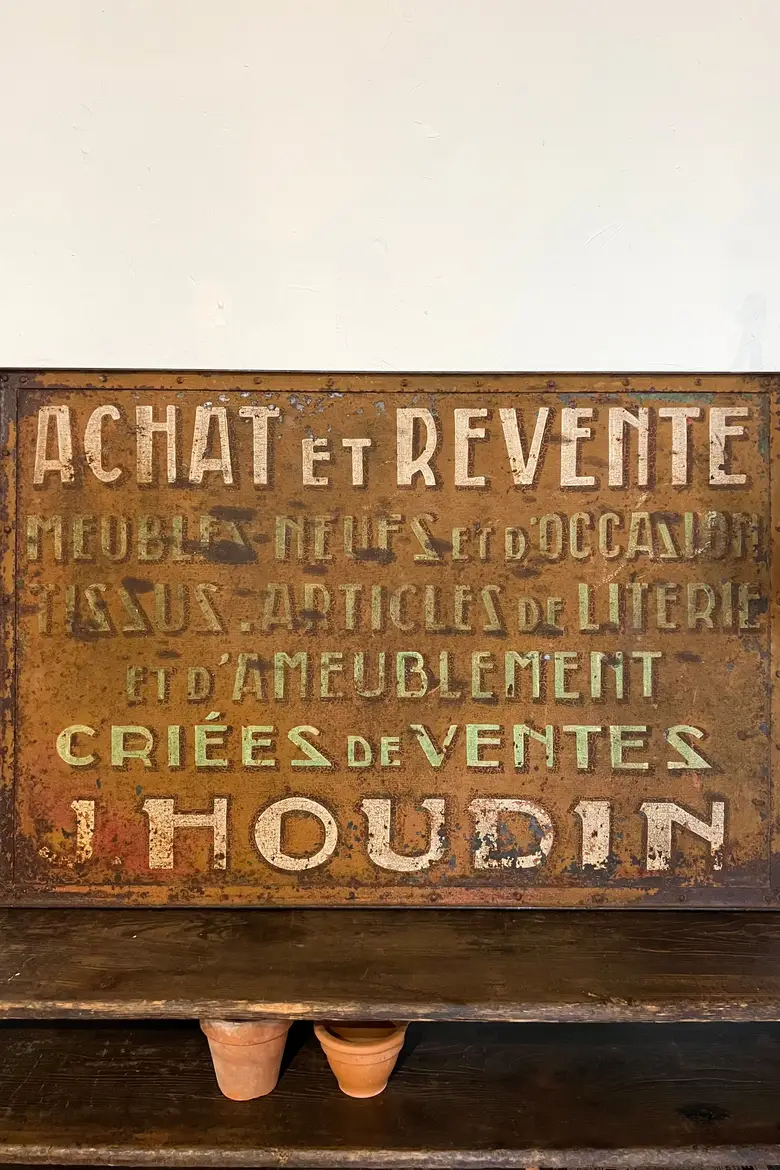 ACHAT ET REVENTE
MEUBLES NEUFS ET D'OCCASION
TISSUS. ARTICLES DE LITERIE
ET D'AMEUBLEMENT
CRIÉES DE VENTES
J HOUDIN